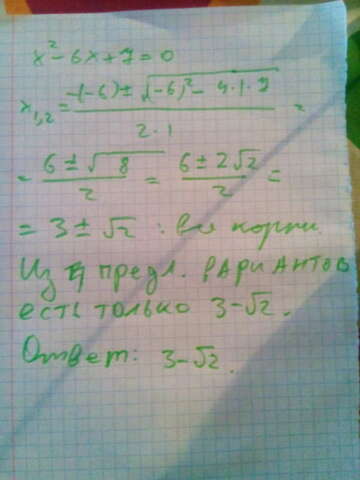 x² - 6x + 7 = 0
x₁,₂ = (-(-6) ± √((-6)² - 4·1·7)) / (2·1) =
= (6 ± √8) / 2 = (6 ± 2√2) / 2 =
= 3 ± √2 : все корни.
Из 4 предл. вариантов
есть только 3-√2.
Ответ: 3-√2.